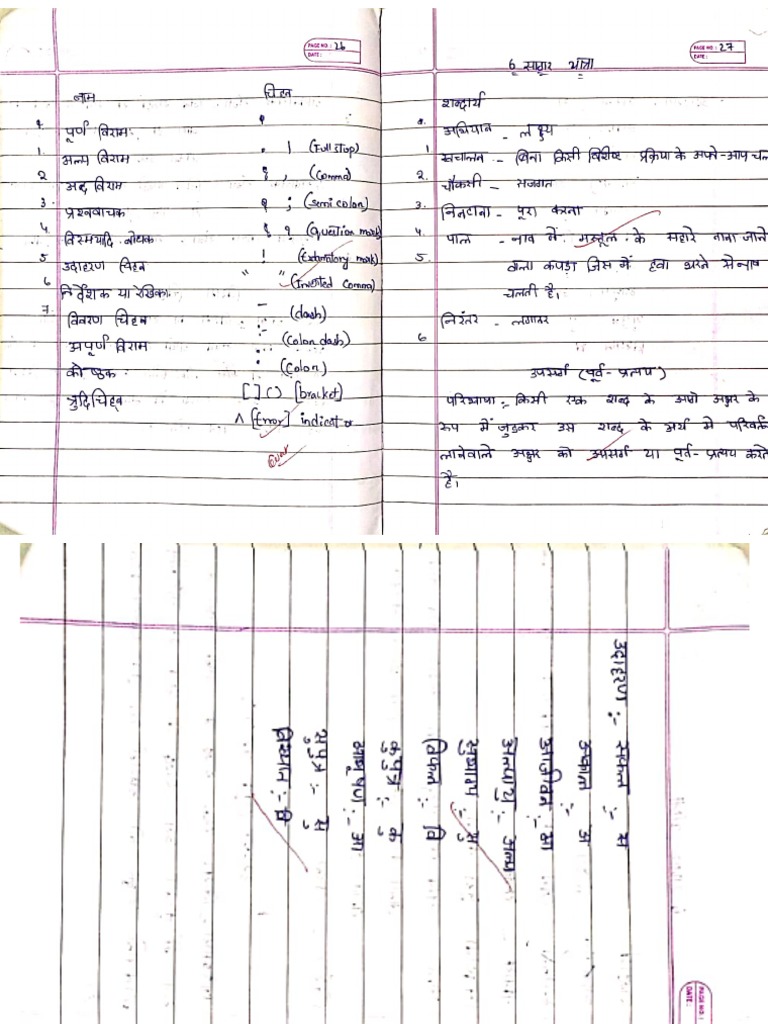 PAGE NO.: 26
DATE:
नाम चिहन
पूर्ण विराम
1. अल्प विराम । (Full stop)
2 अर्द्ध विराम , (Comma)
3. प्रश्नवाचक ; (semi colon)
4. विस्मयादि बोधक ? (Question mark)
5 उदाहरण चिहन ! (mark)
6 निर्देशक या रेखिका " " (Inverted Comma)
7. विवरण चिहन – (dash)
अपूर्ण विराम :– (Colon dash)
कोष्ठक : (Colon)
त्रुटिचिह्न [ ] ( ) [bracket]
^ [Error] indicator
PAGE NO.: 27
DATE:
6 सागर यात्रा
शब्दार्थ
अभियान - लक्ष्य
1 संचालन - बिना किसी विशेष प्रक्रिया के अपने-आप चल
2. चौकसी - सजगत
3. निपटाना - पूरा करना
4. पाल - नाव में मस्तूल के सहारे ताना जाने
5. वला कपड़ा जिस में हवा भरने से नाव
चलती है।
6 निरंतर - लगातर
उपसर्ग (पूर्व-प्रत्यय)
परिभाषा :- किसी एक शब्द के आगे अक्षर के
रूप में जुड़कर उस शब्द के अर्थ मे परिवर्त
लानेवाले अक्षर को उपसर्ग या पूर्व-प्रत्यय करते
है।
उदाहरण :- सफल :- स
अकाल :- अ
आजीवन :- आ
अल्पायु :- अल्प
सुभाष्य :- सु
विफल :- वि
कुपुत्र :- कु
आभूषण :- आ
सुपुत्र :- सु
विख्यात :- वि
PAGE NO.:
DATE: